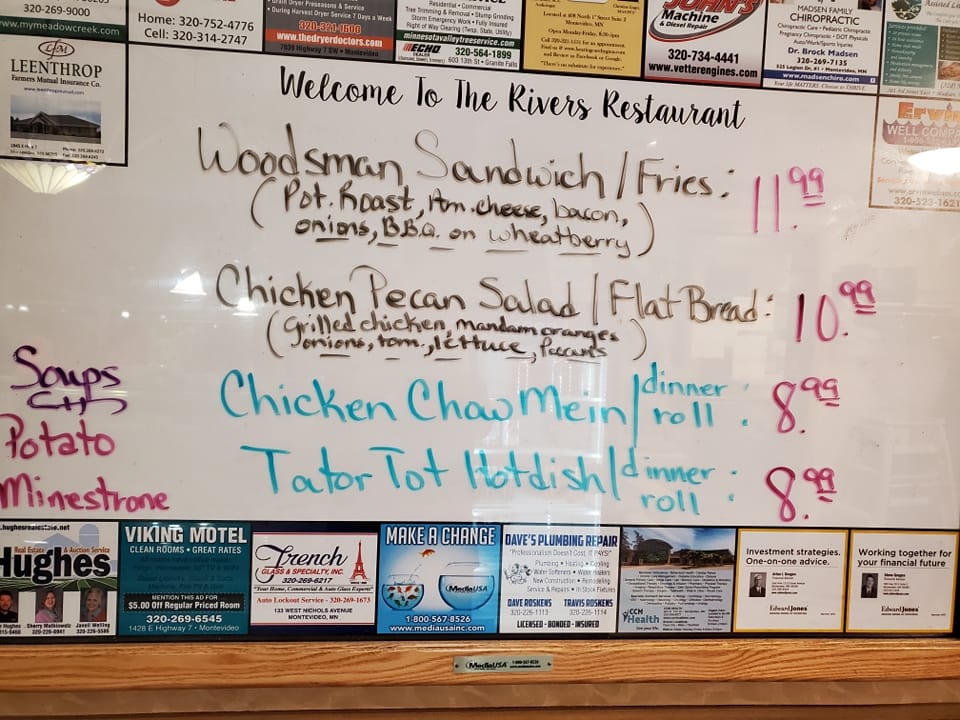 320-269-9000
www.mymeadowcreek.com
Home: 320-752-4776
Cell: 320-314-2747
• Drain Dryer Pressures & Service
• During Harvest Dryer Service 7 Days a Week
320-321-1600
www.thedryerdoctors.com
7839 Highway 7 SW • Montevideo
Residential • Commercial
Tree Trimming & Removal • Stump Grinding
Storm Emergency Work • Fully Insured
Right of Way Clearing
minnesotavalleytreeservice.com
ECHO
DEALER
320-564-1899
603 13th St • Granite Falls
Located at 408 North 1st Street Suite 2
Montevideo, MN
Open Monday-Friday, 8:30-5pm
"There's no substitute for experience."
JOHN'S
Machine
& Diesel Repair
320-734-4441
www.vetterengines.com
MADSEN FAMILY
CHIROPRACTIC
Chiropractic Care • Pediatric Chiropractic
Pregnancy Chiropractic • DOT Physicals
Auto/Work/Sports Injuries
Dr. Brock Madsen
320-269-7135
525 Legion Dr. #1 • Montevideo, MN
www.madsenchiro.com
Your life MATTERS. Choose to THRIVE.
LFM
LEENTHROP
Farmers Mutual Insurance Co.
Ervin
WELL COMPA
320-523-1621
Welcome To The Rivers Restaurant
Woodsman Sandwich / Fries: 11.99
(Pot. Roast, Am. cheese, bacon,
onions, B.B.Q. on wheatberry)
Chicken Pecan Salad / Flat Bread: 10.99
(Grilled chicken, mandam oranges
onions, tom., lettuce, Pecans)
Soups
Potato
Minestrone
Chicken Chow Mein / dinner roll : 8.99
Tator Tot Hotdish / dinner roll : 8.99
.hughesrealestate.net
Real Estate & Auction Service
Hughes
Sherry Malkiewitz
Janell Welling
320-226-6941
320-226-5585
VIKING MOTEL
CLEAN ROOMS • GREAT RATES
MENTION THIS AD FOR
$5.00 Off Regular Priced Room
320-269-6545
1428 E Highway 7 • Montevideo
French
GLASS & SPECIALTY, INC.
320-269-6217
"Your Home, Commercial & Auto Glass Experts"
Auto Lockout Service - 320-269-1673
133 WEST NICHOLS AVENUE
MONTEVIDEO, MN
MAKE A CHANGE
1-800-567-8526
www.mediausainc.com
DAVE'S PLUMBING REPAIR
"Professionalism Doesn't Cost, It PAYS!"
Plumbing • Heating • Cooling
Water Softeners • Water Heaters
New Construction • Remodeling
Service & Repairs • In Stock Fixtures
DAVE ROSKENS
TRAVIS ROSKENS
320-226-1113
320-226-1114
LICENSED - BONDED - INSURED
CCM
Health
Investment strategies.
One-on-one advice.
Edward Jones
Working together for
your financial future
Edward Jones
MediaUSA
1-800-567-8526